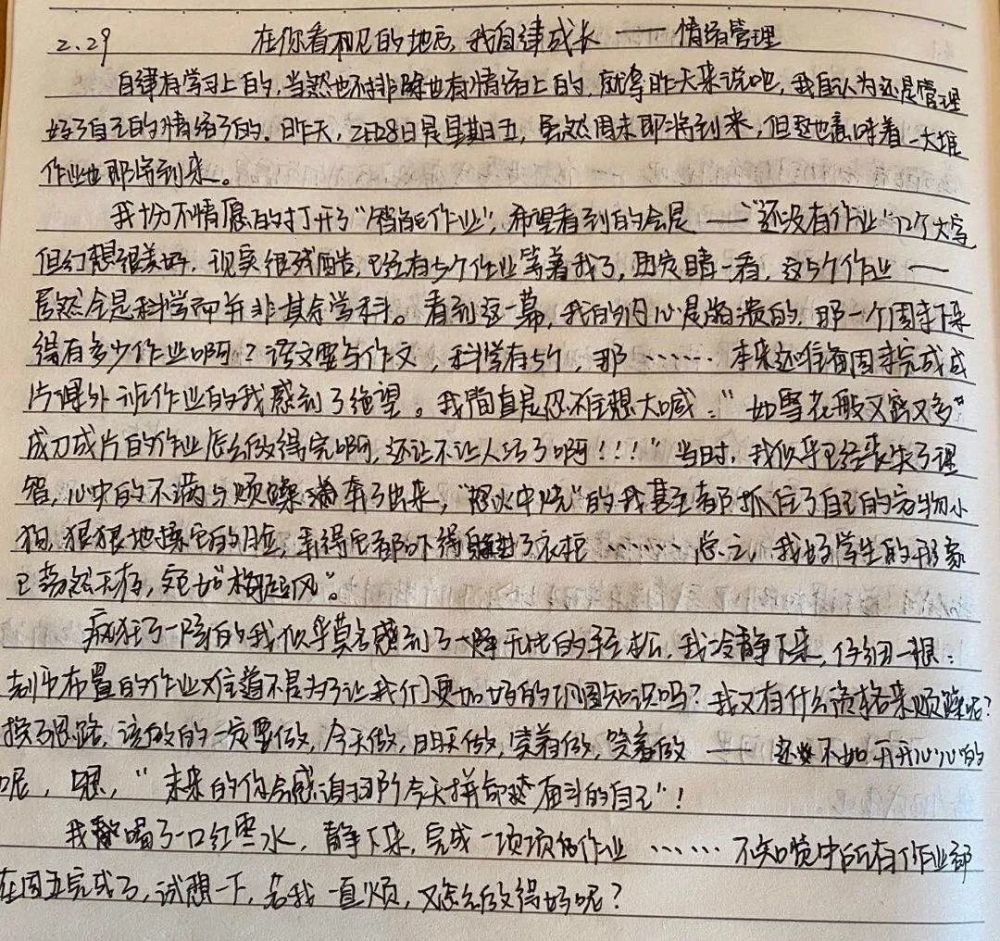 2.29 在你看不见的地方,我自律成长 —— 情绪管理
自律有学习上的,当然也不排除也有情绪上的,就拿昨天来说吧,我自认为还是管理
好了自己的情绪了的。昨天,2月28日是星期五,虽然周末即将到来,但这也意味着一大堆
作业也即将到来。
我十分不情愿的打开了“智能作业”,希望看到的会是——“还没有作业”几个大字
但幻想很美好,现实很残酷,已经有5个作业等着我了,再定睛一看,这5个作业——
居然全是科学而并非其余学科。看到这一幕,我的内心是崩溃的,那一个周末下来
得有多少作业啊?语文要写作文,科学有5个,那……本来还准备周末完成成
片课外班作业的我感到了绝望。我简直是忍不住想大喊:“如雪花般又密又多
成刀成片的作业怎么做得完啊,还让不让人活了啊!!!”当时,我似乎已经丧失了理
智,心中的不满与烦躁满奔了出来,“怒火中烧”的我甚至都抓住了自己的宠物小
狗,狠狠地揉它的脸,弄得它都吓得躲进了衣柜……总之,我好学生的形象
已荡然无存,宛如“梅超风”。
疯狂了一阵的我似乎莫名感到了一阵无比的轻松,我冷静下来,仔细一想:
老师布置的作业难道不是为了让我们更加好的巩固知识吗?我又有什么资格来烦躁呢?
换了思路,该做的一定要做,今天做,明天做,哭着做,笑着做——还不如开开心心的
呢,嗯,“未来的你会感谢那个今天拼命奋斗的自己”!
我喝了一口红枣水,静下来,完成一项项的作业……不知觉中所有作业都
在周五完成了,试想一下,若我一直烦,又怎么做得好呢?